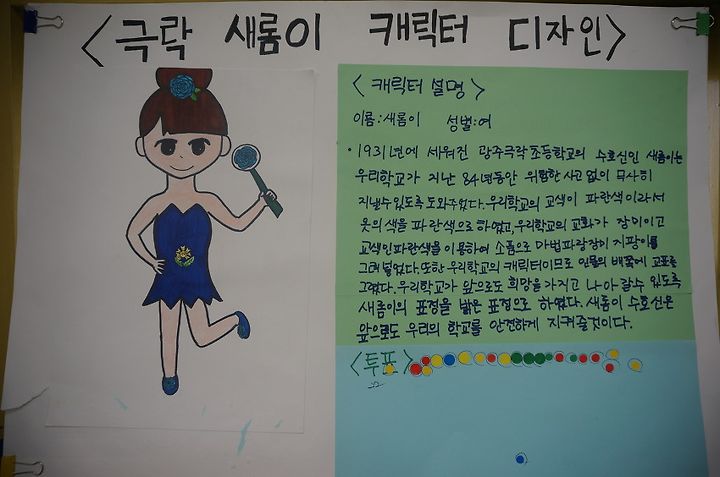 <극락 새롬이 캐릭터 디자인>
<캐릭터 설명>
이름:새롬이 성별:여
• 1931년에 세워진 광주극락초등학교의 수호신인 새롬이는
우리학교가 지난 84년동안 위험한 사고 없이 무사히
지낼수 있도록 도와주었다. 우리학교의 교색이 파란색이라서
옷의 색을 파란색으로 하였고, 우리학교의 교화가 장미이고
교색인 파란색을 이용하여 소품으로 마법파랑장미 지팡이를
그려 넣었다. 또한 우리학교의 캐릭터이므로 인물의 배쪽에 교표를
그렸다. 우리학교가 앞으로도 희망을 가지고 나아갈수 있도록
새롬이의 표정을 밝은 표정으로 하였다. 새롬이 수호신은
앞으로도 우리의 학교를 안전하게 지켜줄것이다.
<투표>
22